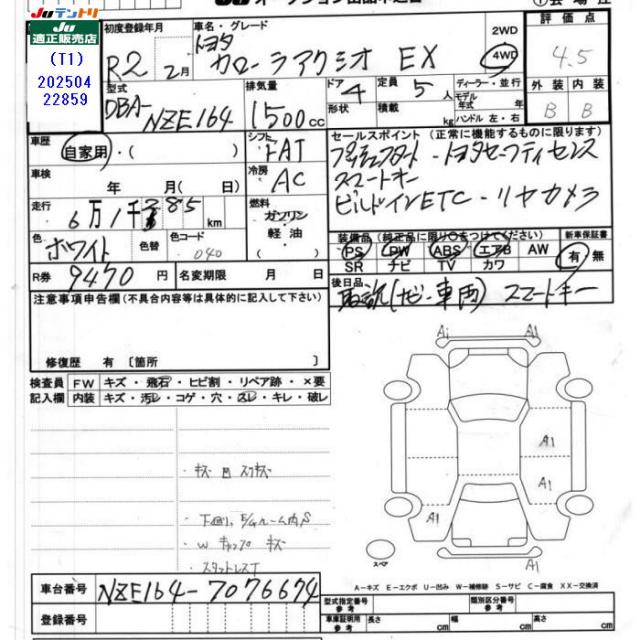 Juテントリ
Ju
適正販売店
(T1)
202504
22859
初度登録年月 R2 2月
車名・グレード トヨタ カローラアクシオ EX
2WD
4WD
評価点 4.5
型式 DBA-NZE164
排気量 1500cc
ドア 4
形状
定員 5人
積載 kg
ディーラー・並行
モデル年式 年式
ハンドル 左・右
外装 内装
B B
車歴 自家用・( )
シフト FAT
車検 年 月( )
冷房 AC
走行 6万1千385km
燃料 ガソリン・軽油・( )
色 ホワイト
色替
色コード 040
R券 9470円
名変期限 月 日
セールスポイント (正常に機能するものに限ります)
プッシュスタート・トヨタセーフティセンス
スマートキー
ビルドインETC・リヤカメラ
装備品 (純正品に限り○をつけてください)
新車保証書
PS PW ABS エアB AW
SR ナビ TV カワ
有・無
後日品 取説(ナビ・車両) スマートキー
注意事項申告欄(不具合内容等は具体的に記入して下さい)
修復歴 有〔箇所 〕
検査員 FW キズ・飛石・ヒビ割・リペア跡・×要
記入欄 内装 キズ・汚レ・コゲ・穴・スレ・キレ・破レ
下回り、E/Gルーム内S
A1 A1
A1
A1
A1 A1
A1
スペア
A-キズ E-エクボ U-凹み W-補修跡 S-サビ C-腐食 XX-交換済
車台番号 NZE164-7076674
登録番号
型式指定番号 参考
類別区分番号 参考
車庫証明用 参考 長さ cm 幅 cm 高さ cm